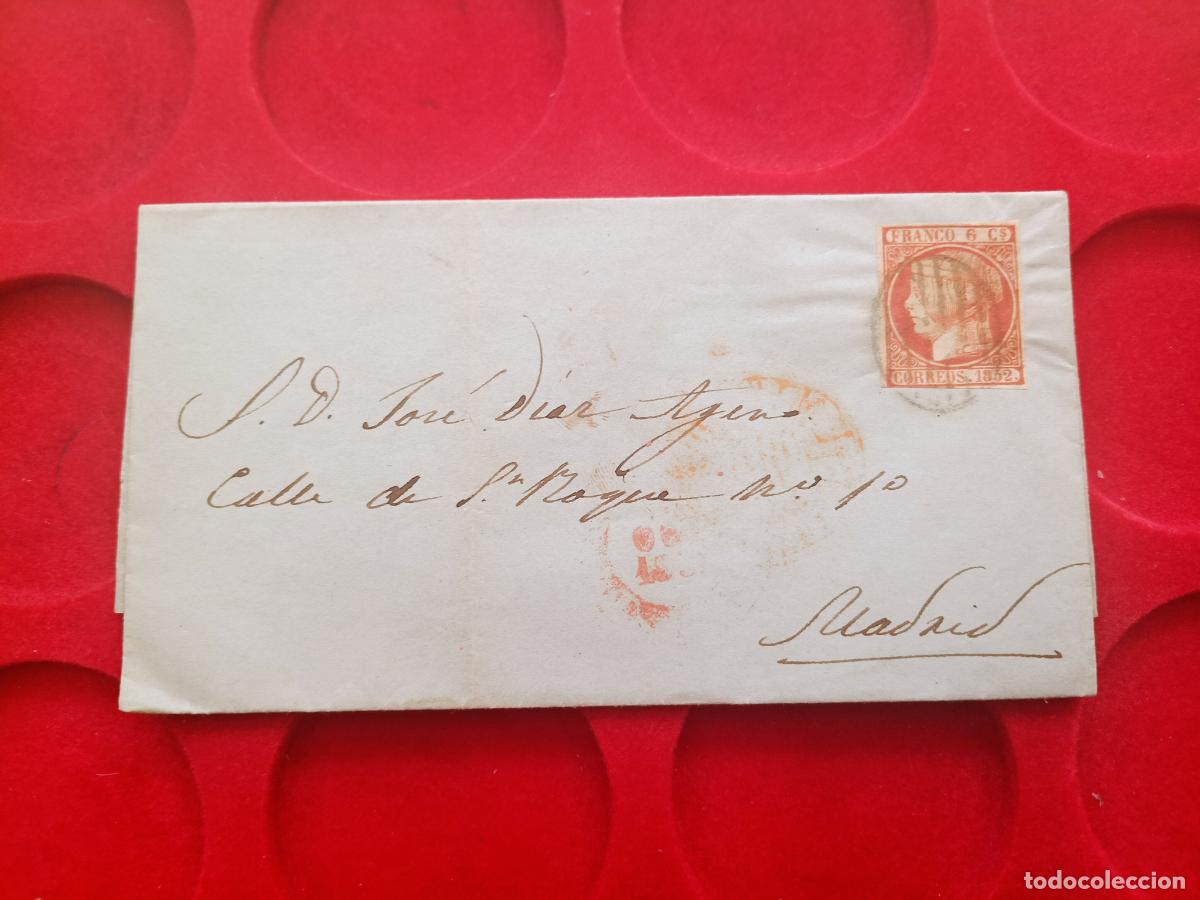 FRANCO 6 Cs
CORREOS. 1852.
S. D. José Díaz Agero.
Calle de Sn Roque No. 1º
Madrid
todocoleccion